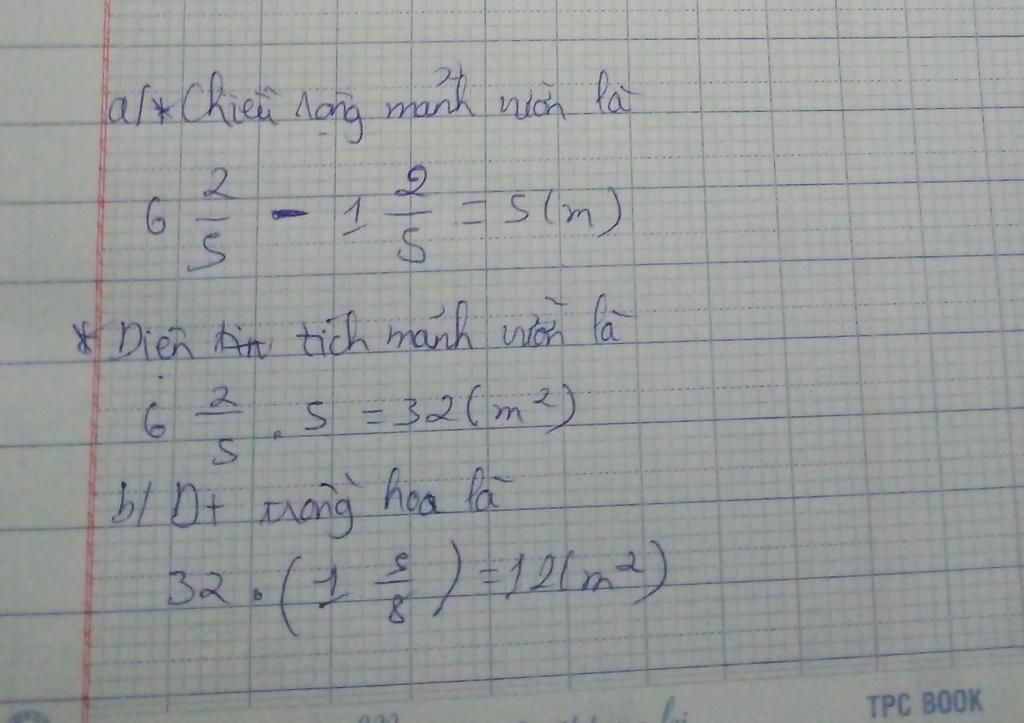 a/* Chiều rộng mảnh vườn là
6 2/5 - 1 2/5 = 5 (m)
* Diện tích mảnh vườn là
6 2/5 . 5 = 32 (m²)
b/ Dt trồng hoa là
32 . (1 5/8) = 12 (m²)
TPC BOOK